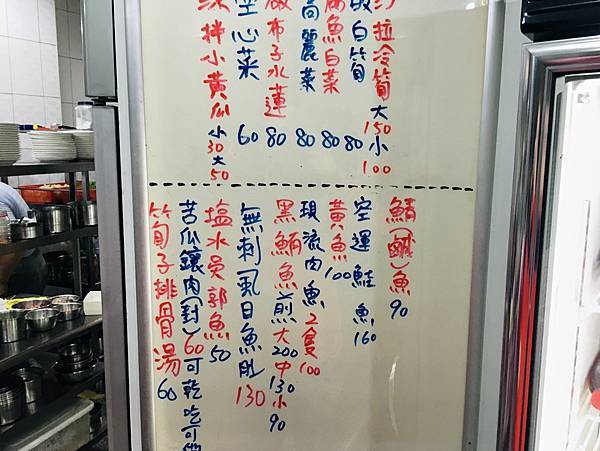 拉冷筍大150小100
白筍 80
魚白菜 80
高麗菜 80
布子水蓮 80
空心菜 60
拌小黃瓜小30大50
鯖(鹹)魚 90
空運鮭魚 160
黃魚 100
現流肉魚2隻100
黑鯧魚煎大200中130小90
無刺虱目魚肚 130
塩水吳郭魚 50
苦瓜鑲肉(封)60可乾吃可
筍子排骨湯 60